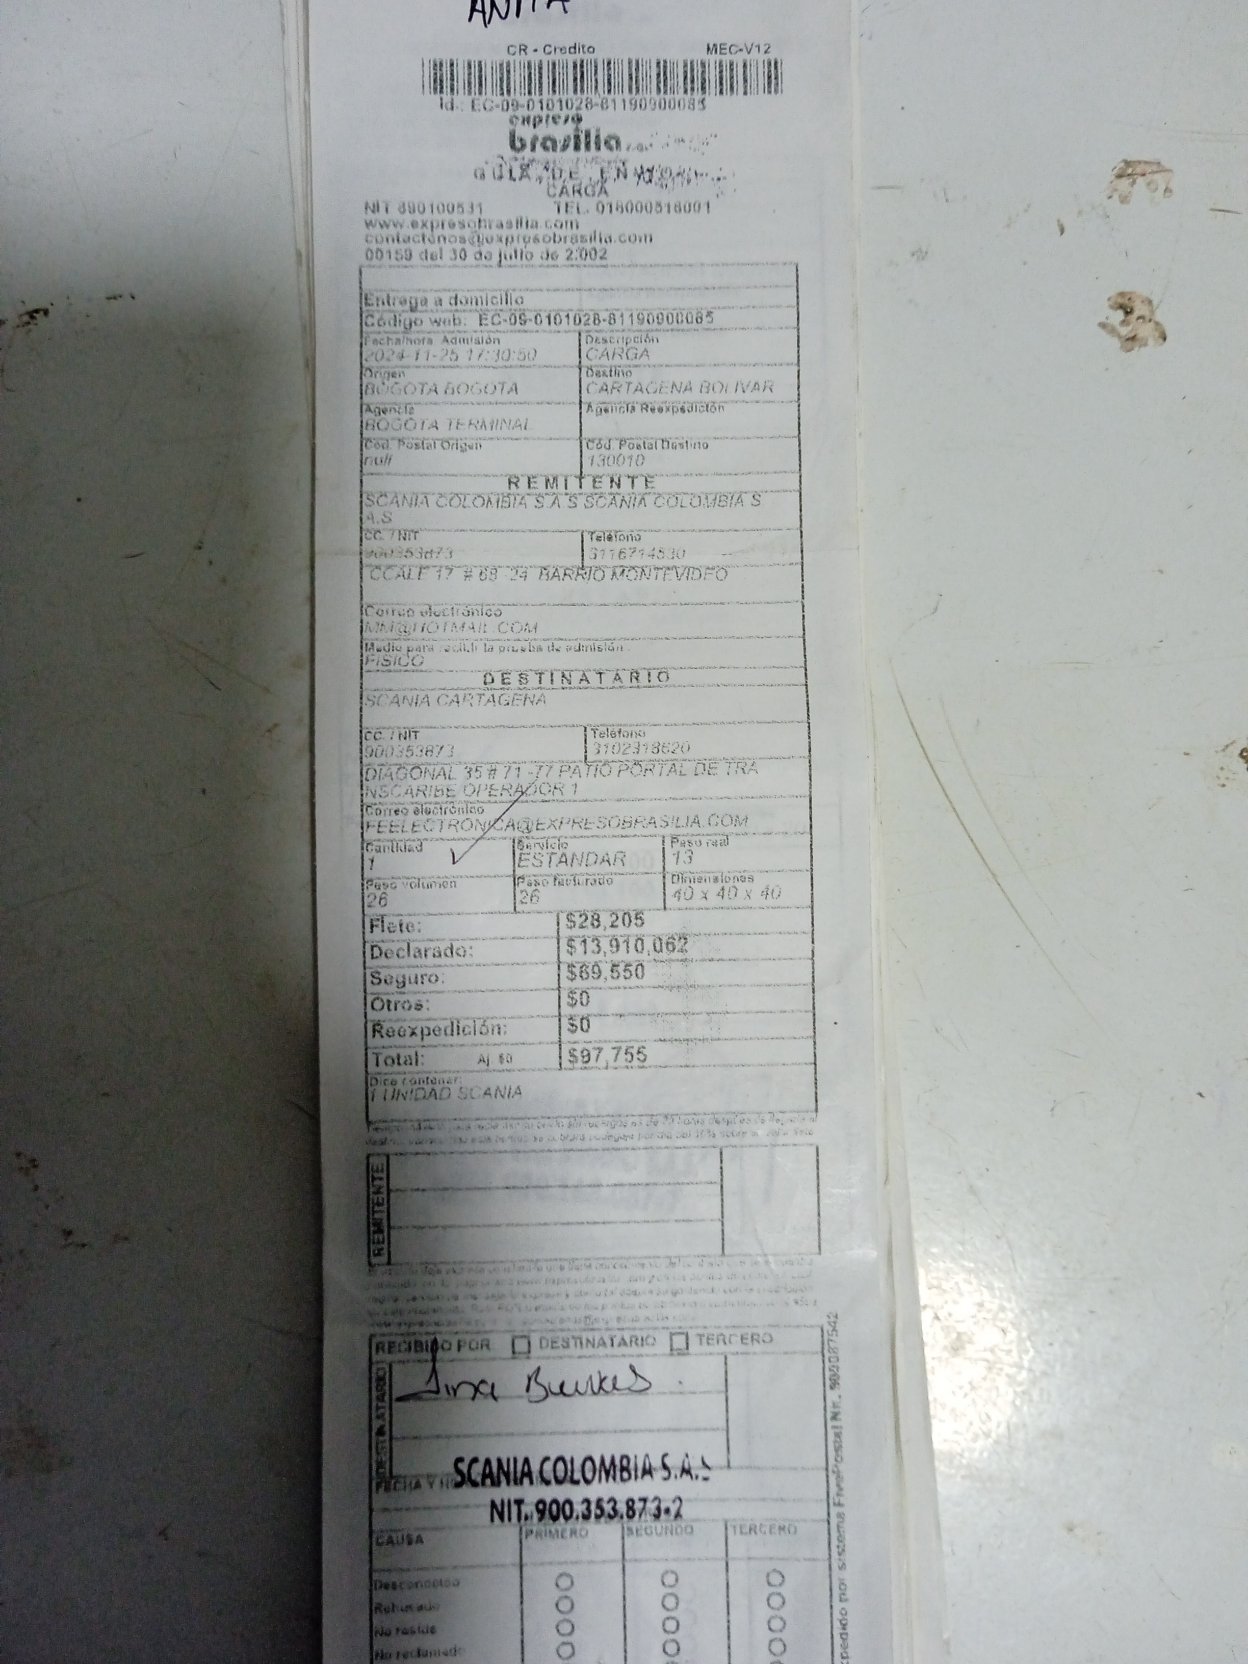 ANITA
CR - Credito MEC-V12
Id.: EC-09-0101028-81190900085
expreso
brasilia
GUIA DE
CARGA
NIT 890100531 TEL. 018000518001
www.expresobrasilia.com
contactenos@expresobrasilia.com
00159 del 30 de julio de 2.002
Entrega a domicilio
Código web: EC-09-0101028-81190900085
Fecha/hora Admisión Descripción
2024-11-25 17:30:50 CARGA
Origen Destino
BOGOTA BOGOTA CARTAGENA BOLIVAR
Agencia Agencia Reexpedición
BOGOTA TERMINAL
Cód. Postal Origen Cód. Postal Destino
null 130010
REMITENTE
SCANIA COLOMBIA S A S SCANIA COLOMBIA S
A.S
CC. / NIT Teléfono
900353873 3116714530
CCALE 17 # 68 -24 BARRIO MONTEVIDEO
Correo electrónico
MM@HOTMAIL.COM
Medio para recibir la prueba de admisión :
FISICO
DESTINATARIO
SCANIA CARTAGENA
CC. / NIT Teléfono
900353873 3102318620
DIAGONAL 35 # 71 -77 PATIO PORTAL DE TRA
NSCARIBE OPERADOR 1
Correo electrónico
FEELECTRONICA@EXPRESOBRASILIA.COM
Cantidad Servicio Peso real
1 ESTANDAR 13
Peso volumen Peso facturado Dimensiones
26 26 40 x 40 x 40
Flete: $28,205
Declarado: $13,910,062
Seguro: $69,550
Otros: $0
Reexpedición: $0
Total: Aj $0 $97,755
Dice contener:
1 UNIDAD SCANIA
REMITENTE
RECIBIDO POR DESTINATARIO TERCERO
DESTINATARIO
FECHA Y
SCANIA COLOMBIA S.A.S
NIT. 900.353.873-2
CAUSA PRIMERO SEGUNDO TERCERO
Desconocido
Rehusado
No reside
No reclamado
expedido por sistema FivePostal Nr.. 900087542